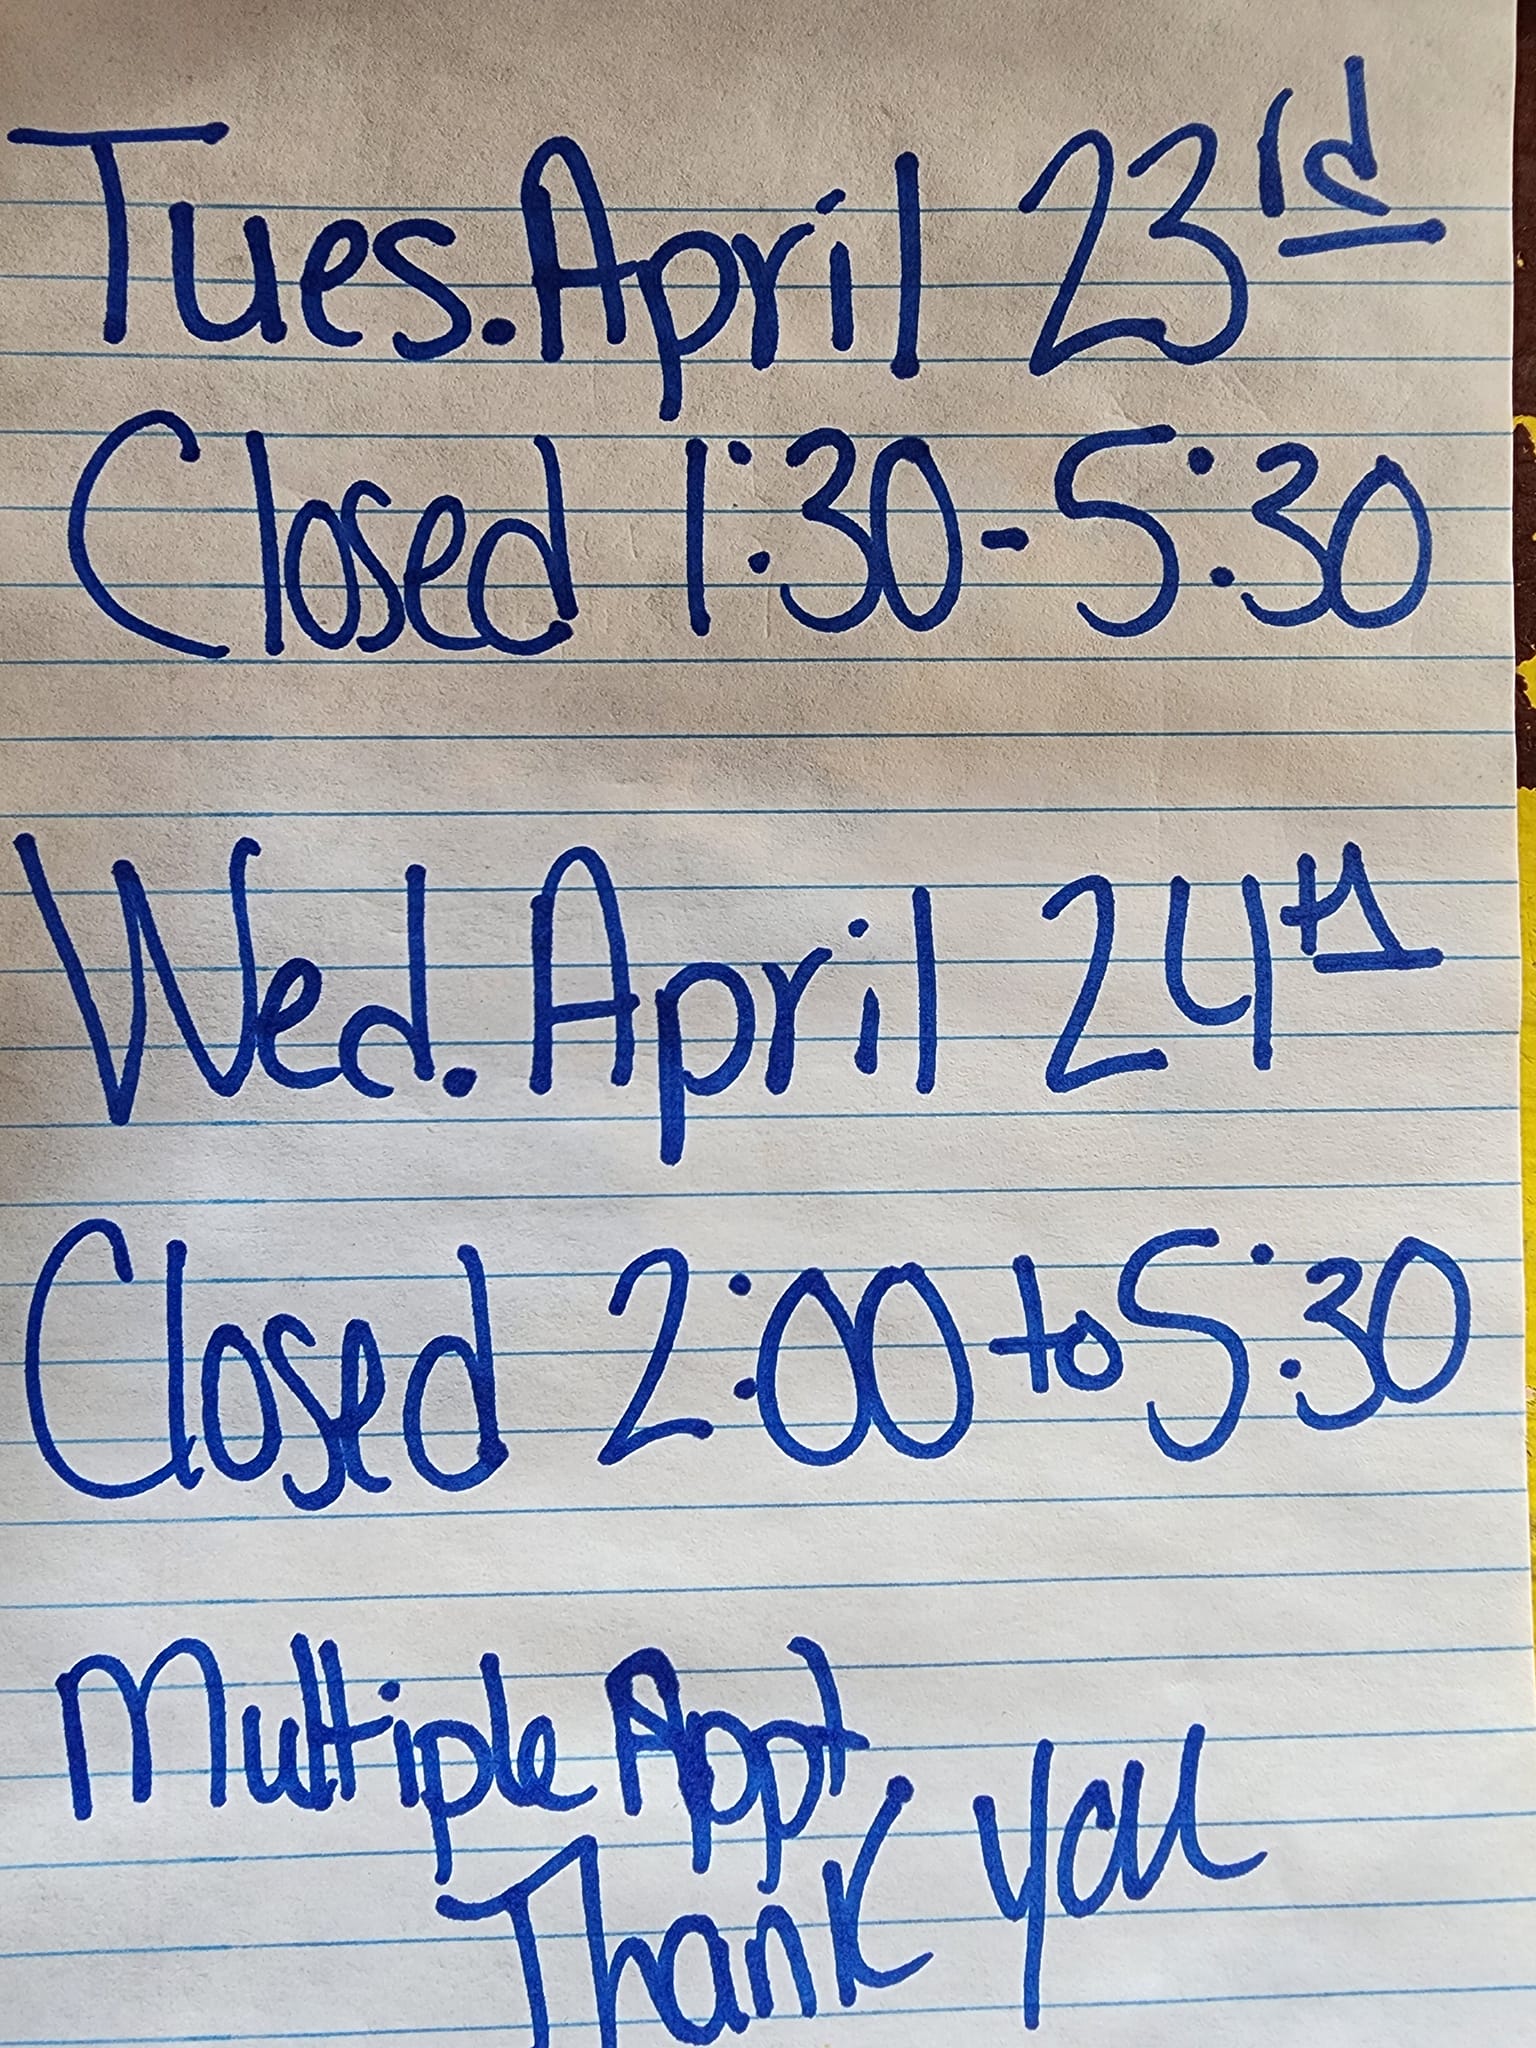 Tues. April 23rd
Closed 1:30-5:30
Wed. April 24th
Closed 2:00 to 5:30
Multiple Appt
Thank you